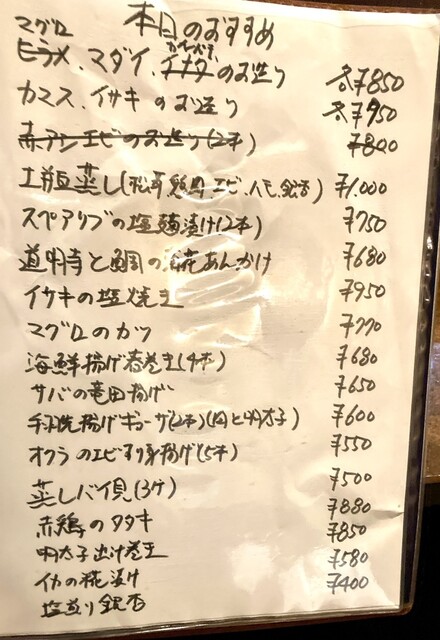 本日のおすすめ
マグロ カンパチ
ヒラメ、マダイ、イナダのお造り 各¥850
カマス、イサキのお造り 各¥950
赤アシエビのお造り(2本) ¥800
土瓶蒸し(松茸、鶏肉、エビ、ハモ、銀杏) ¥1,000
スペアリブの塩麹漬け(2本) ¥750
道明寺と鯛の桜花あんかけ ¥680
イサキの塩焼き ¥950
マグロのカツ ¥770
海鮮揚げ春巻き(4本) ¥680
サバの竜田揚げ ¥650
手羽先揚げギョーザ(2本)(肉と明太子) ¥600
オクラのエビすり身揚げ(5本) ¥550
蒸しバイ貝(3ケ) ¥500
赤鶏のタタキ ¥880
明太子出汁巻玉 ¥850
イカの糀漬け ¥580
塩煎り銀杏 ¥400